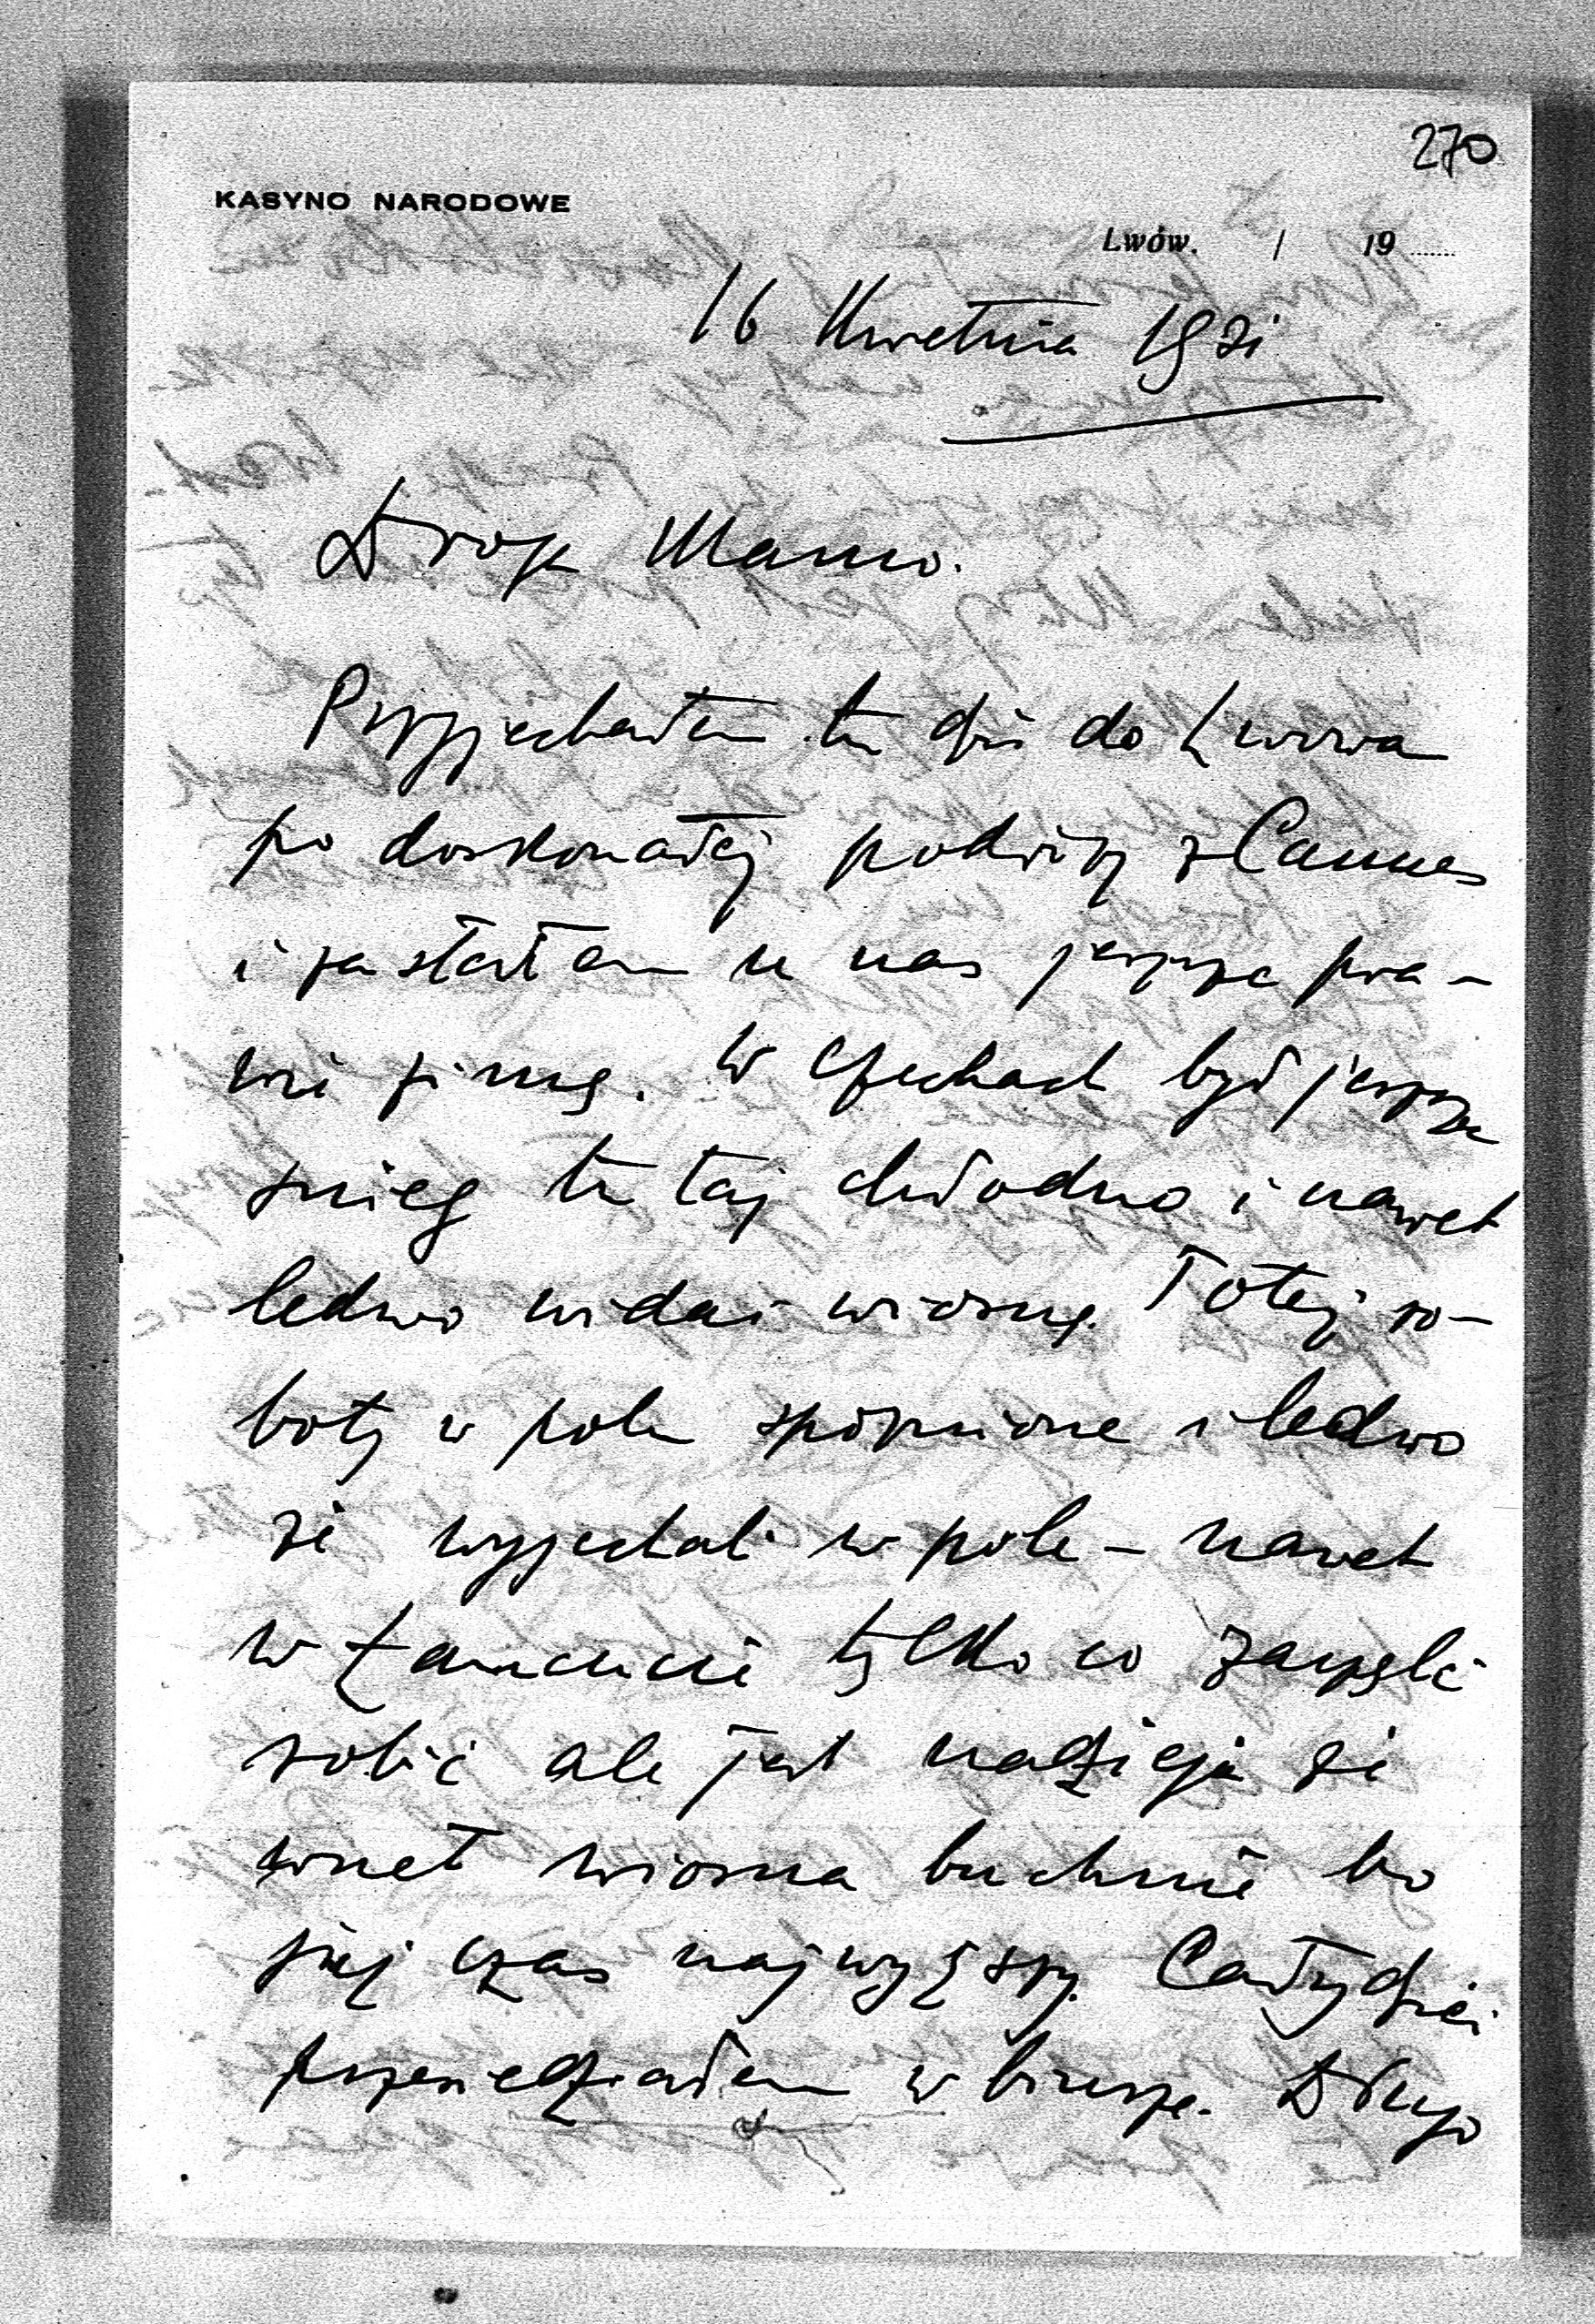 270
KASYNO NARODOWE
Lwów. / 19
16 Kwietnia 1931
Droga Mamo.
Przyjechałem tu dziś do Lwowa
po doskonałej podróży z Cannes
i zastałem u nas jeszcze pra-
wie zimę. W Czechach był jeszcze
śnieg tutaj chłodno i nawet
ledwo widać wiosnę. Toteż ro-
boty w polu spóźnione i ledwo
że wyjechali w pole – nawet
w Łańcucie tylko co zaczęli
robić ale jest nadzieja że
wnet wiosna buchnie bo
jej czas najwyższy. Cały dzień
przesiedziałem w biurze. Długo